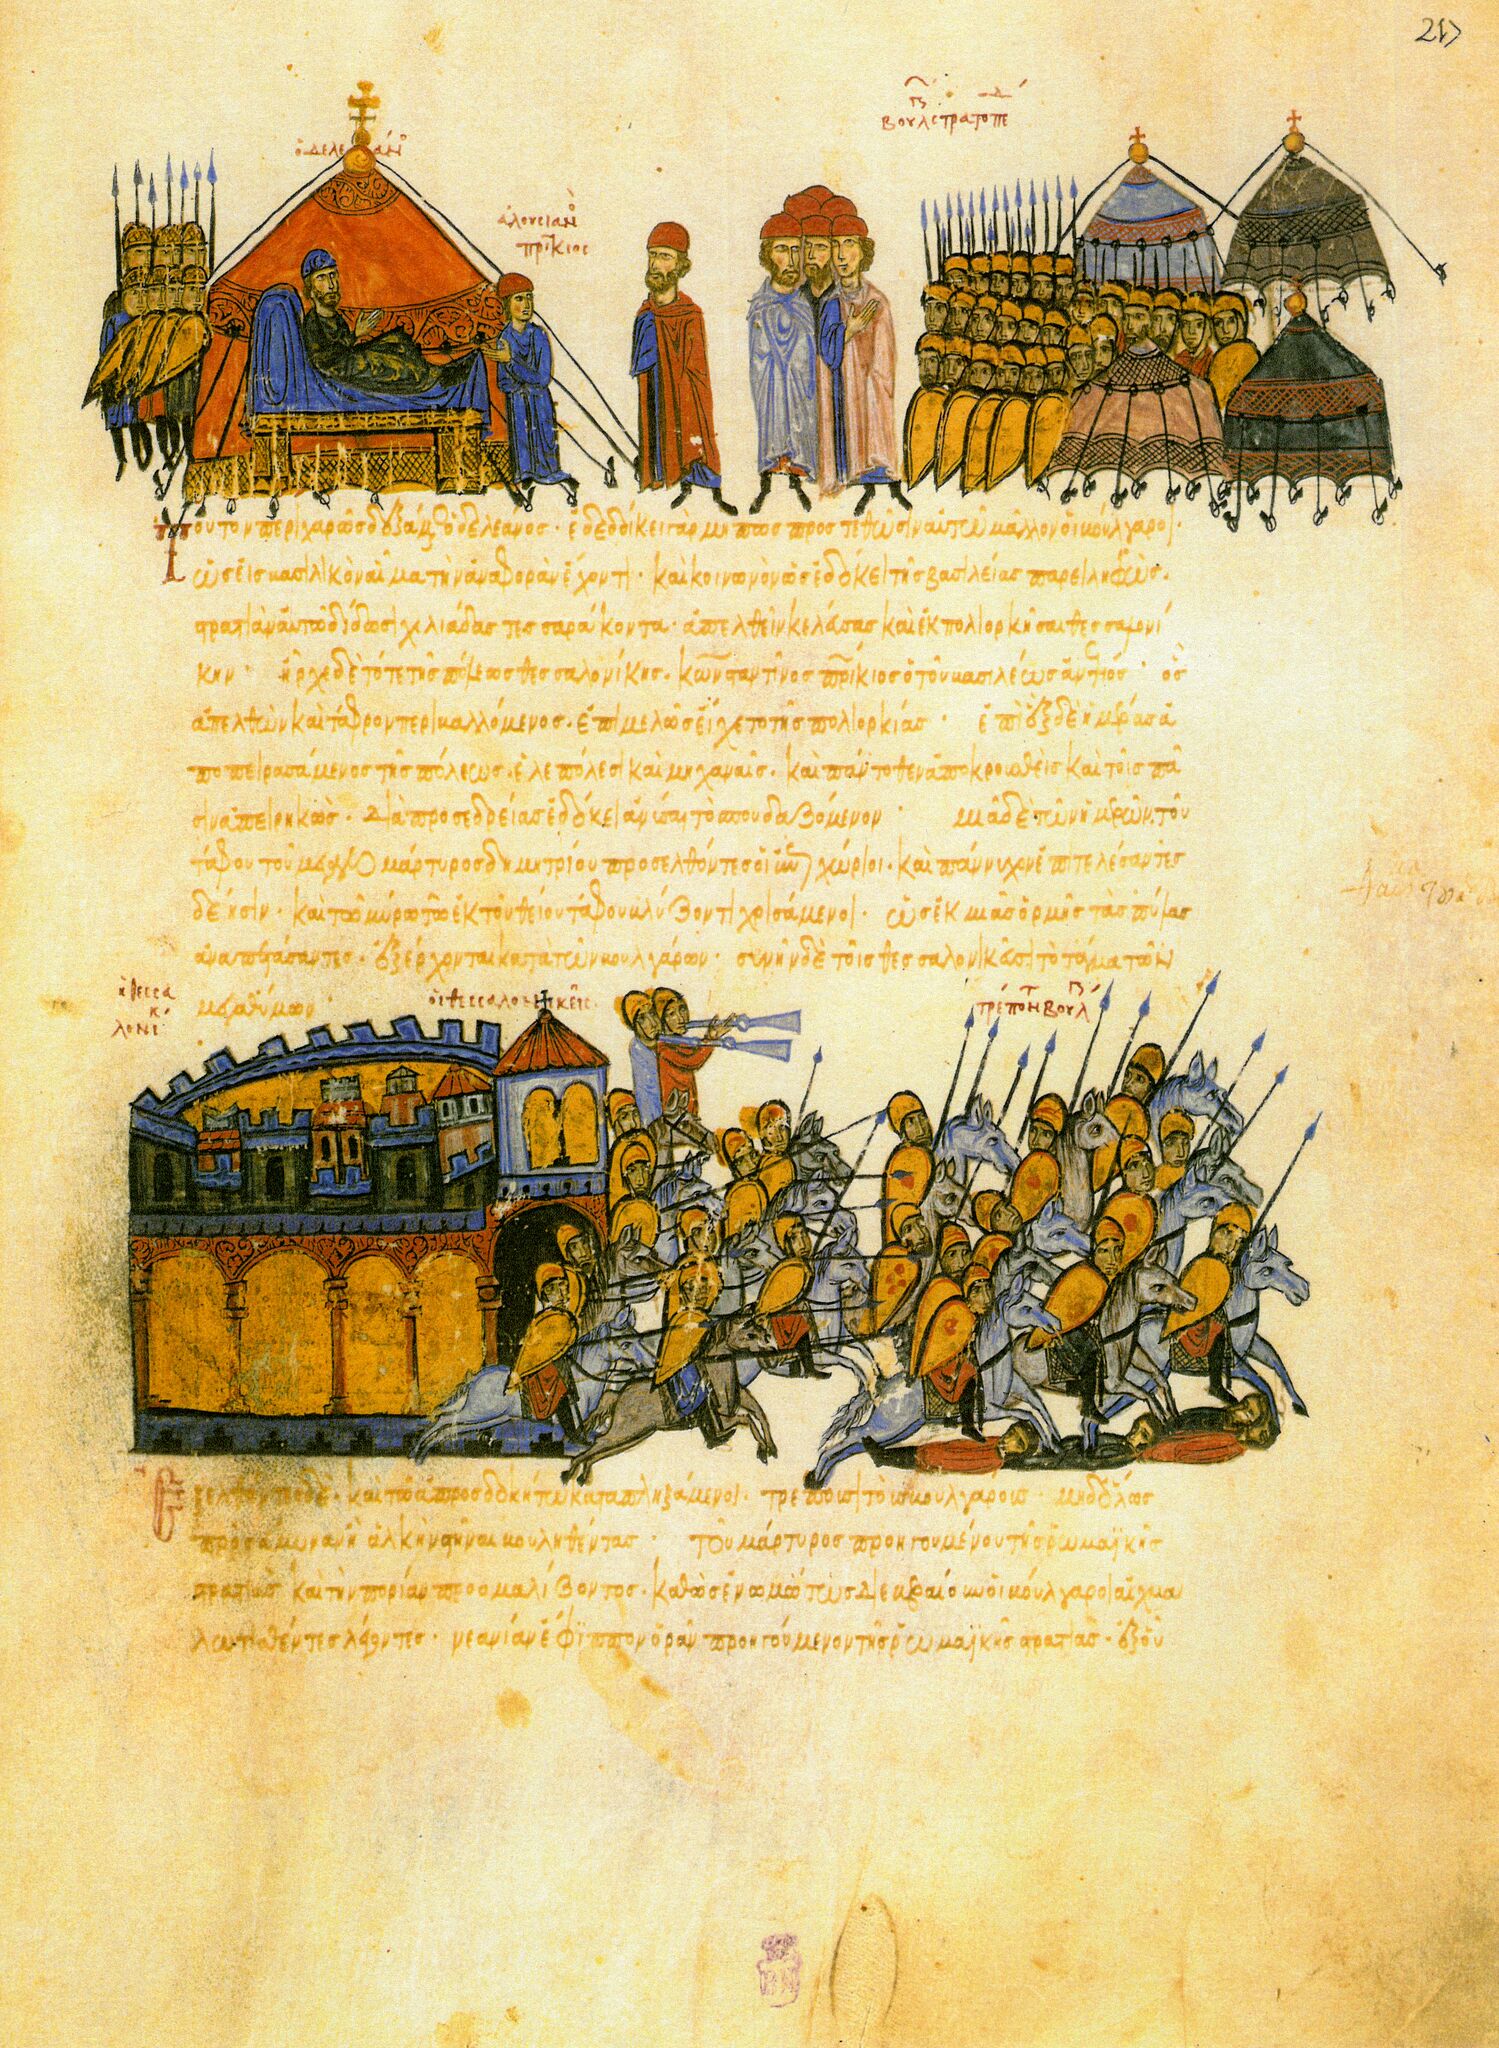 217
ὁ δελεάνο
ἀλουσιάνο
πρίκιος
βουλ στρατοπε
τοῦτον περιχαρῶς δέξάμενος ὁ δελεάνος· ἐδεδοίκει γὰρ μήπως προστεθῶσιν αὐτῶ μᾶλλον οἱ βούλγαροι·
ὡς εἰς βασιλικὸν αἷμα τὴν ἀναφορὰν ἔχοντι· καὶ κοινωνὸν ὡς ἐδόκει τῆς βασιλείας παρειληφὼς·
στρατιὰν αὐτῶ δίδωσι χιλιάδας τεσσαράκοντα· ἀπελθεῖν κελεύσας καὶ ἐκπολιορκῆσαι θεσσαλονί
κην· ἦρχε δὲ τότε τῆς πόλεως θεσσαλονίκης· κωνσταντῖνος πρίκιος ὁ τοῦ βασιλέως ἀνεψιός· ὃς
ἀπελθὼν καὶ τάφρον περιβαλλόμενος· ἐπιμελῶς εἴχετο τῆς πολιορκίας· ἐπὶ ἓξ δὲ ἡμέρας ἀ
ποπειρασάμενος τῆς πόλεως· ἑλεπόλεσι καὶ μηχαναῖς· καὶ πάντοθεν ἀποκρουσθεὶς καὶ τοῖς πᾶ
σιν ἀπειρηκὼς· διὰ προσεδρείας ἐδόκει ἀνύσαι τὸ σπουδαζόμενον· μιᾶ δὲ τῶν ἡμερῶν· τοῦ
τάφου τοῦ μεγαλομάρτυρος δημητρίου προσελθόντες οἱ ἐγχώριοι· καὶ παννυχον ἐπιτελέσαντες
δέησιν· καὶ τῶ μύρω τῶ ἐκ τοῦ θείου τάφου βλύζοντι χρισάμενοι· ὡς ἐκ μιᾶς ὁρμῆς τὰς πύλας
ἀναπετάσαντες· ἐξέρχονται κατὰ τῶν βουλγάρων· συνῆν δὲ τοῖς θεσσαλονικεῦσι τὸ τάγμα τῶν
μεγαθύμων·
ἡ θεσσα
λονί κ
οἱ θεσσαλονικεῖς
τρέποντ βουλγ
ἐξελθόντες δὲ· καὶ τῶ ἀπροσδοκήτω καταπληξάμενοι· τρέπουσι τοὺς βουλγάρους· μηδόλως
πρὸς ἄμυναν ἢ ἀλκὴν στῆναι βουληθέντας· τοῦ μάρτυρος προηγουμένου τῆς ῥωμαϊκῆς
στρατιᾶς καὶ τὴν πορίαν προομαλίζοντος· καθὼς ἐνωμότως διεβεβαίουν οἱ βούλγαροι αἰχμα
λωτισθέντες λέγοντες· νεανίαν ἔφιππον ὁρᾶν προηγούμενον τῆς ῥωμαϊκῆς στρατιᾶς· ἐξ οὗ
BN